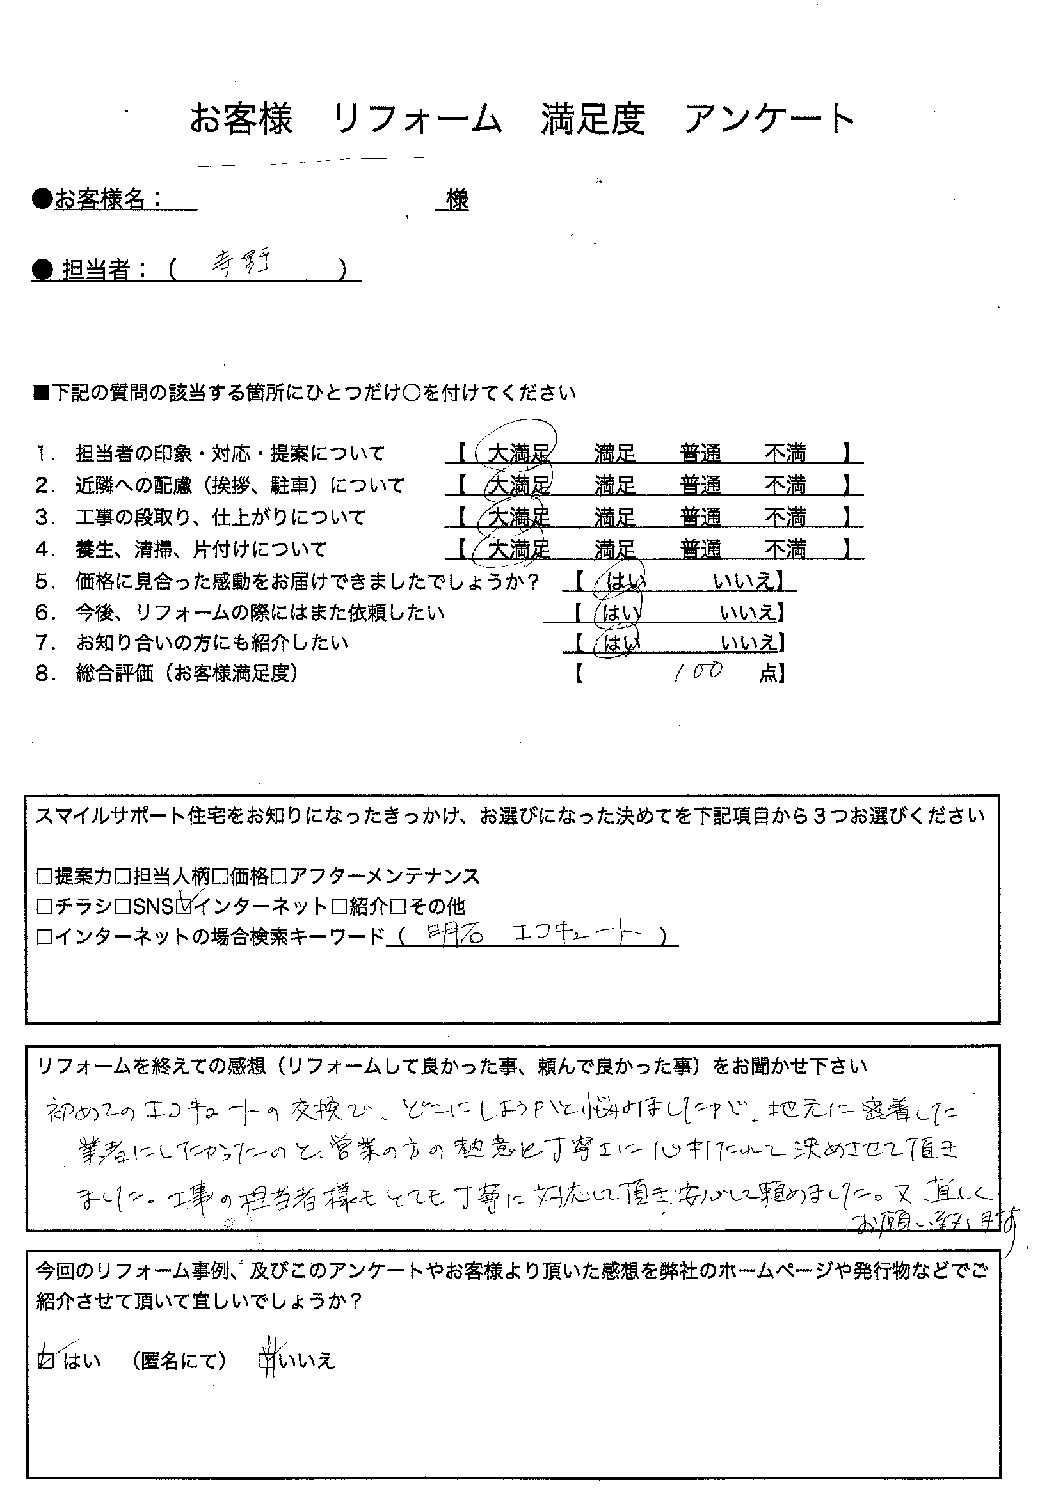 お客様　リフォーム　満足度　アンケート
●お客様名：　　　　　　様
● 担当者：（　寺野　）
■下記の質問の該当する箇所にひとつだけ〇を付けてください
1. 担当者の印象・対応・提案について 【 大満足 満足 普通 不満 】
2. 近隣への配慮（挨拶、駐車）について 【 大満足 満足 普通 不満 】
3. 工事の段取り、仕上がりについて 【 大満足 満足 普通 不満 】
4. 養生、清掃、片付けについて 【 大満足 満足 普通 不満 】
5. 価格に見合った感動をお届けできましたでしょうか？ 【 はい いいえ】
6. 今後、リフォームの際にはまた依頼したい 【 はい いいえ】
7. お知り合いの方にも紹介したい 【 はい いいえ】
8. 総合評価（お客様満足度） 【 100 点】
スマイルサポート住宅をお知りになったきっかけ、お選びになった決めてを下記項目から３つお選びください
□提案力□担当人柄□価格□アフターメンテナンス
□チラシ□SNS☑インターネット□紹介□その他
□インターネットの場合検索キーワード（ 明石 エコキュート ）
リフォームを終えての感想（リフォームして良かった事、頼んで良かった事）をお聞かせ下さい
初めてのエコキュートの交換で、どこにしようかと悩みましたが、地元に密着した
業者にしたかったのと、営業の方の熱意と丁寧さに心打たれて決めさせて頂き
ました。工事の担当者様もとても丁寧に対応して頂き安心して頼めました。又、宜しく
お願い致します
今回のリフォーム事例、及びこのアンケートやお客様より頂いた感想を弊社のホームページや発行物などでご
紹介させて頂いて宜しいでしょうか？
☑はい　（匿名にて）　□いいえ